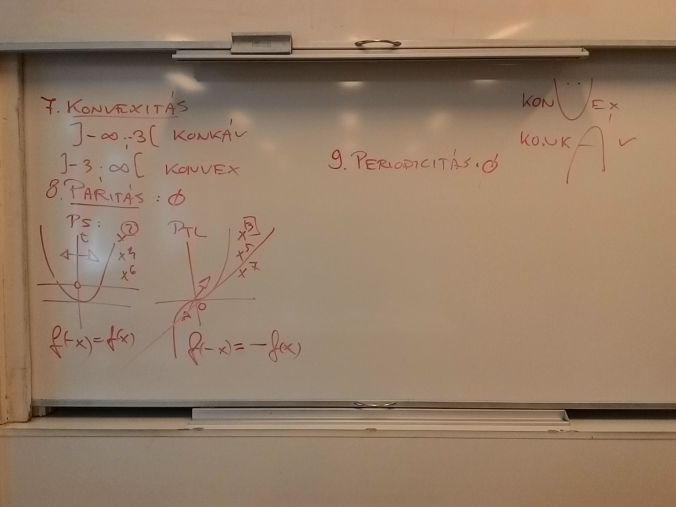 7. KONVEXITÁS
]-∞;-3[ KONKÁV
]-3;∞[ KONVEX
8. PARITÁS: ∅
PS:
t
x²
x⁴
x⁶
f(-x)=f(x)
PTL
x³
x⁵
x⁷
O
f(-x)=-f(x)
9. PERIODICITÁS: ∅
KONVEX
KONKÁV